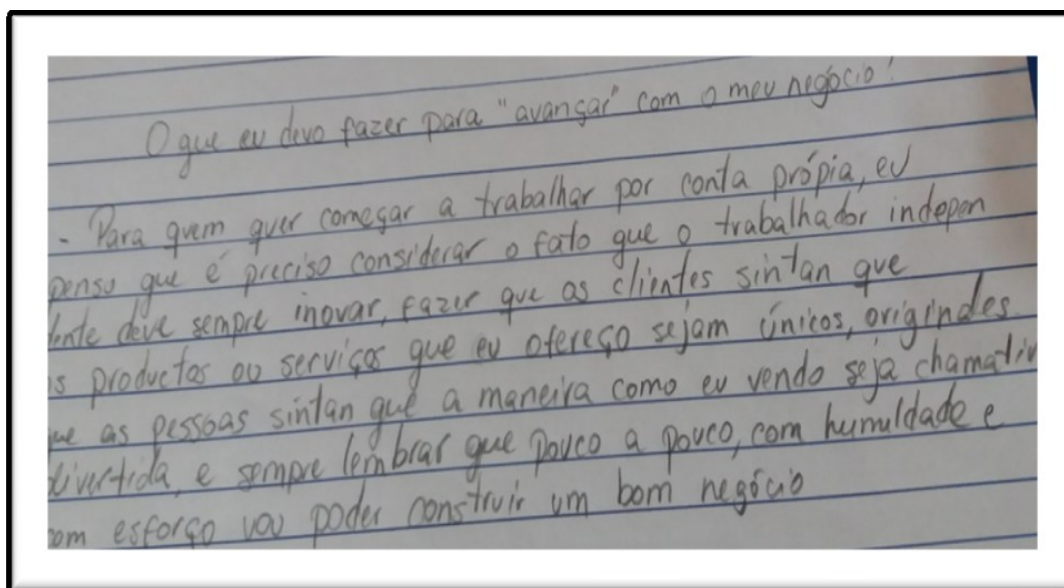 O que eu devo fazer para "avançar" com o meu negócio?
- Para quem quer começar a trabalhar por conta própia, eu
penso que é preciso considerar o fato que o trabalhador indepen
ente deve sempre inovar, fazer que os clientes sintan que
s productos ou serviços que eu ofereço sejam únicos, origindes
ue as pessoas sintan que a maneira como eu vendo seja chamativ
divertida, e sempre lembrar que pouco a pouco, com humuldade e
om esforço vou poder construir um bom negócio